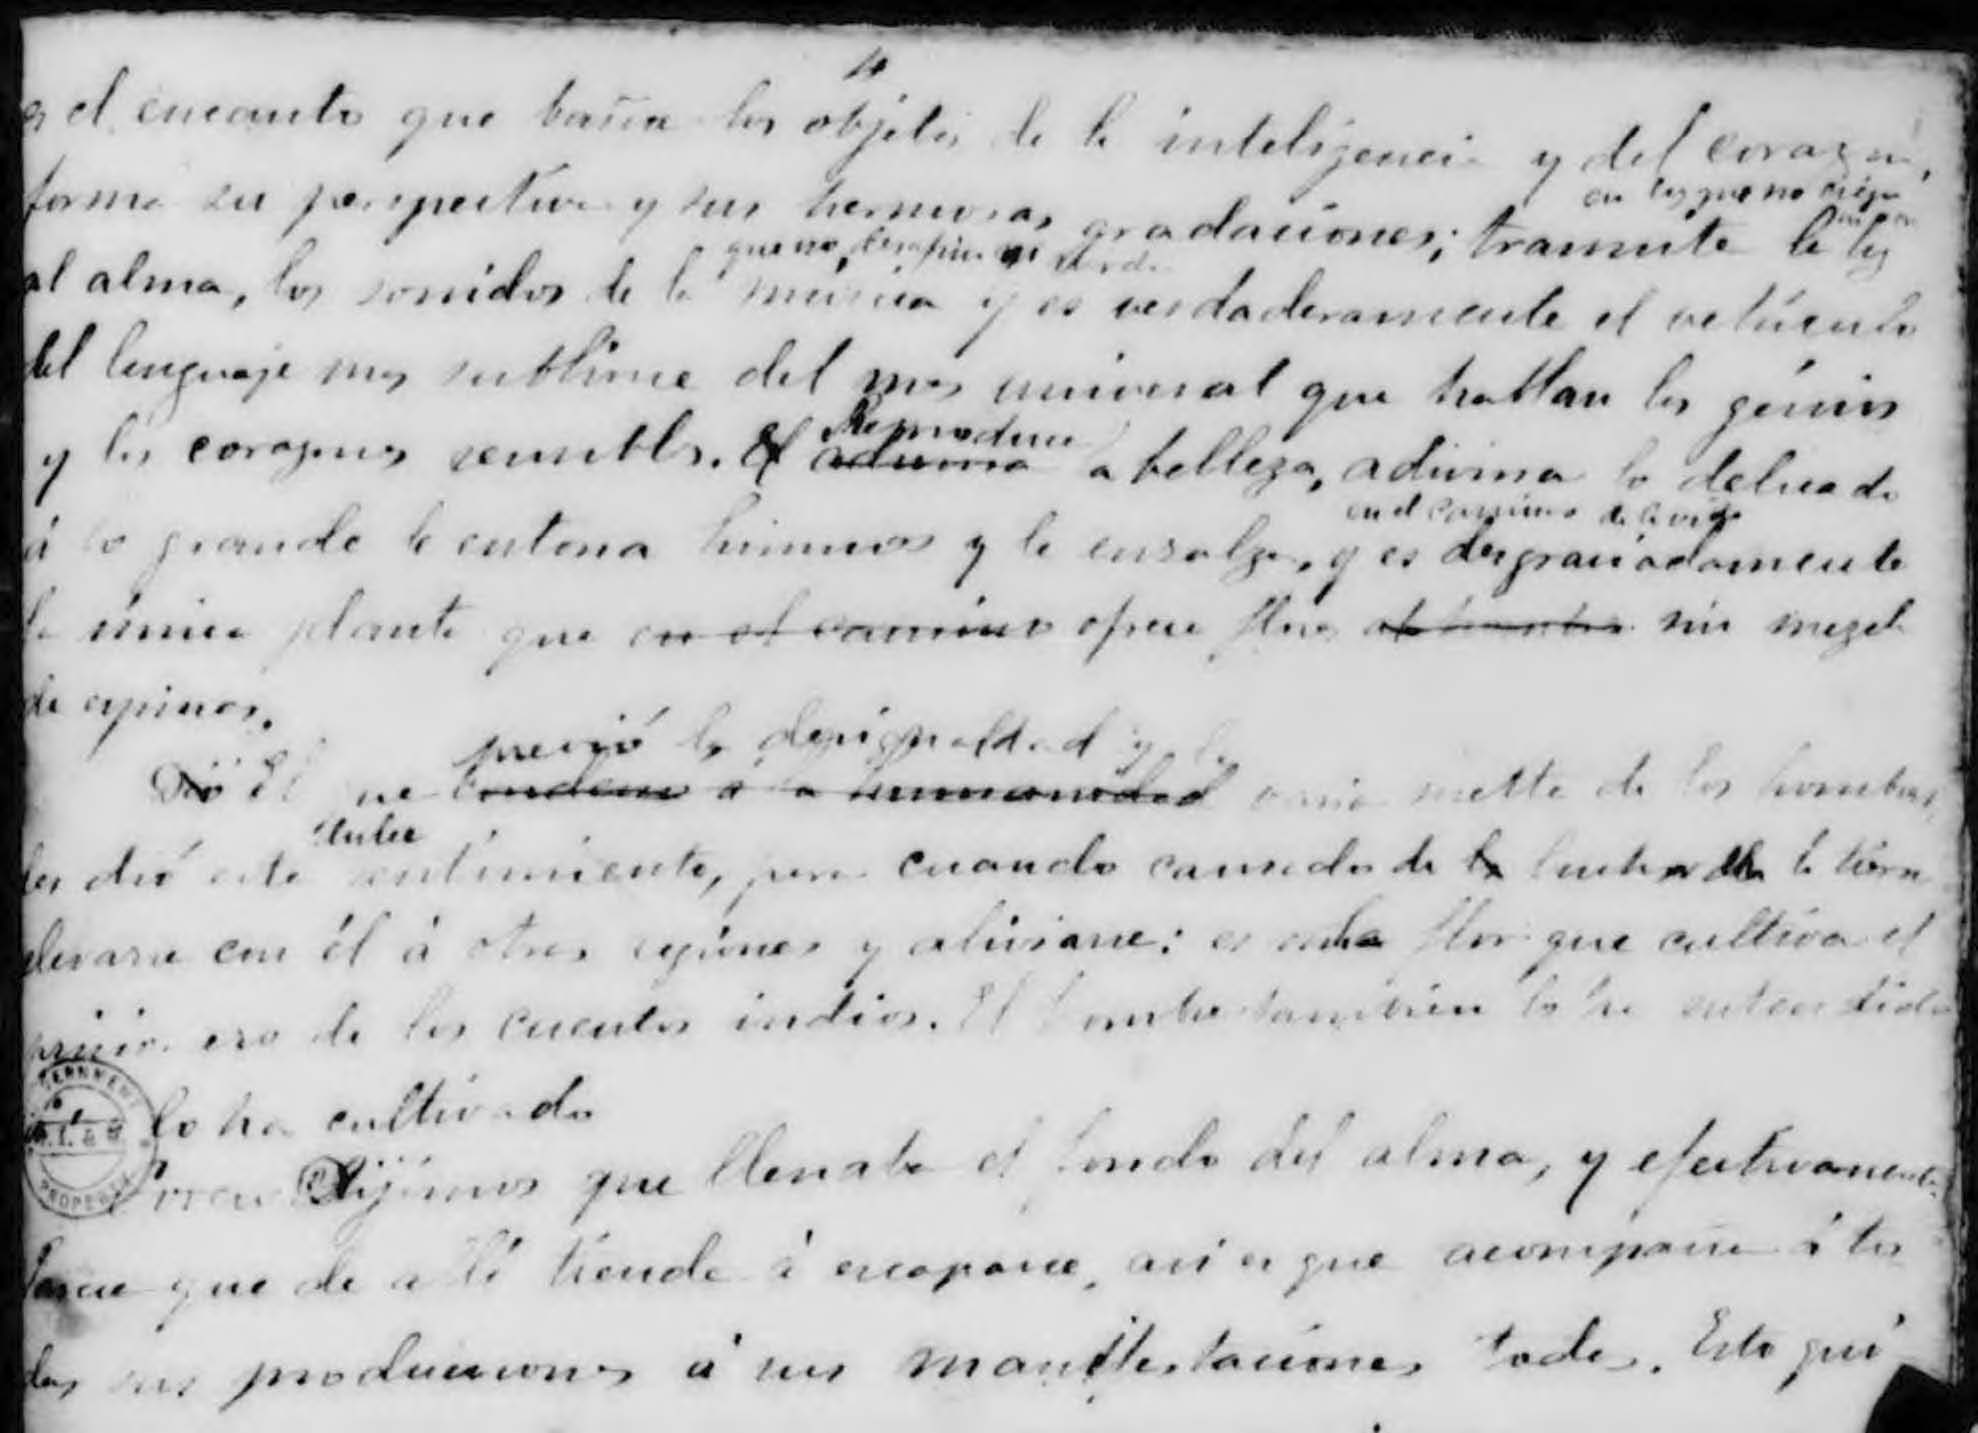 el encanto que baña los objetos de la inteligencia y del corazon,
en los que no ciega
forma su perspectiva y sus hermosas gradaciones; trasmite la luz
que no ni
al alma, los sonidos de la música y es verdaderamente el vehículo
del lenguaje mas sublime del mas universal que hablan los génios
Reproduce
y los corazones sensibles. El adivina la belleza, adivina lo delicado
en el camino de la vida
á lo grande le entona himnos y le ensalza, y es desgraciadamente
la única planta que en el camino ofrece flores sin mezcla
de espinas.
previó la desigualdad y la
Dió El que condenó á la humanidad varia suerte de los hombres,
dulce
les dió este sentimiento, para cuando cansados de la lucha de la tierra
elevarse con él á otras regiones y aliviarse: es esta flor que cultiva el
prisionero de los cuentos indios. El hombre tambien lo ha entendido
lo ha cultivado
Dijimos que llenaba el fondo del alma, y efectivamente
parece que de allí tiende á escaparse, asi es que acompaña á to
das sus producciones á sus manifestaciones todas. Esto qui
PROPERTY